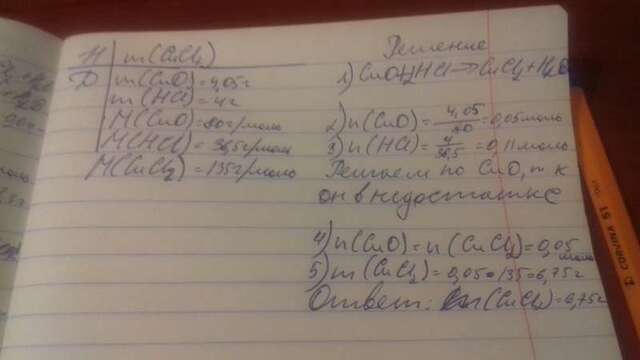 Н m(CuCl₂)
Д m(CuO)=4,05г
m(HCl)=4г
M(CuO)=80г/моль
M(HCl)=36,5г/моль
M(CuCl₂)=135г/моль
Решение
1) CuO+2HCl→CuCl₂+H₂O
2) n(CuO)=4,05/80=0,05моль
3) n(HCl)=4/36,5=0,11моль
Решаем по CuO, т к
он в недостатке
4) n(CuO)=n(CuCl₂)=0,05
моль
5) m(CuCl₂)=0,05•135=6,75г
Ответ: m(CuCl₂)=6,75г
CORVINA 51